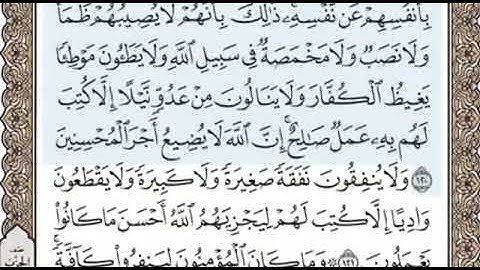 بِأَنفُسِهِمْ عَن نَّفْسِهِۦ ۚ ذَٰلِكَ بِأَنَّهُمْ لَا يُصِيبُهُمْ ظَمَأٌ
وَلَا نَصَبٌ وَلَا مَخْمَصَةٌ فِى سَبِيلِ ٱللَّهِ وَلَا يَطَـُٔونَ مَوْطِئًا
يَغِيظُ ٱلْكُفَّارَ وَلَا يَنَالُونَ مِنْ عَدُوٍّ نَّيْلًا إِلَّا كُتِبَ
لَهُم بِهِۦ عَمَلٌ صَٰلِحٌ ۚ إِنَّ ٱللَّهَ لَا يُضِيعُ أَجْرَ ٱلْمُحْسِنِينَ
١٢٠ وَلَا يُنفِقُونَ نَفَقَةً صَغِيرَةً وَلَا كَبِيرَةً وَلَا يَقْطَعُونَ
وَادِيًا إِلَّا كُتِبَ لَهُمْ لِيَجْزِيَهُمُ ٱللَّهُ أَحْسَنَ مَا كَانُوا۟
يَعْمَلُونَ ١٢١ ۞ وَمَا كَانَ ٱلْمُؤْمِنُونَ لِيَنفِرُوا۟ كَآفَّةً ۚ
نصف
الحزب